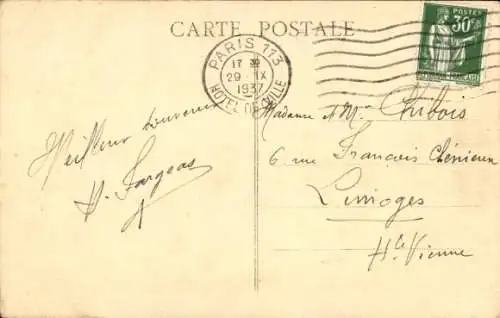 CARTE POSTALE
PARIS 113
17 30
29 IX
1937
HOTEL DE VILLE
POSTES
30c
RÉPUBLIQUE FRANÇAISE
Meilleur souvenir
H. Fargeas
Madame et Mr Chibois
6 rue François Chénieux
Limoges
Hte Vienne